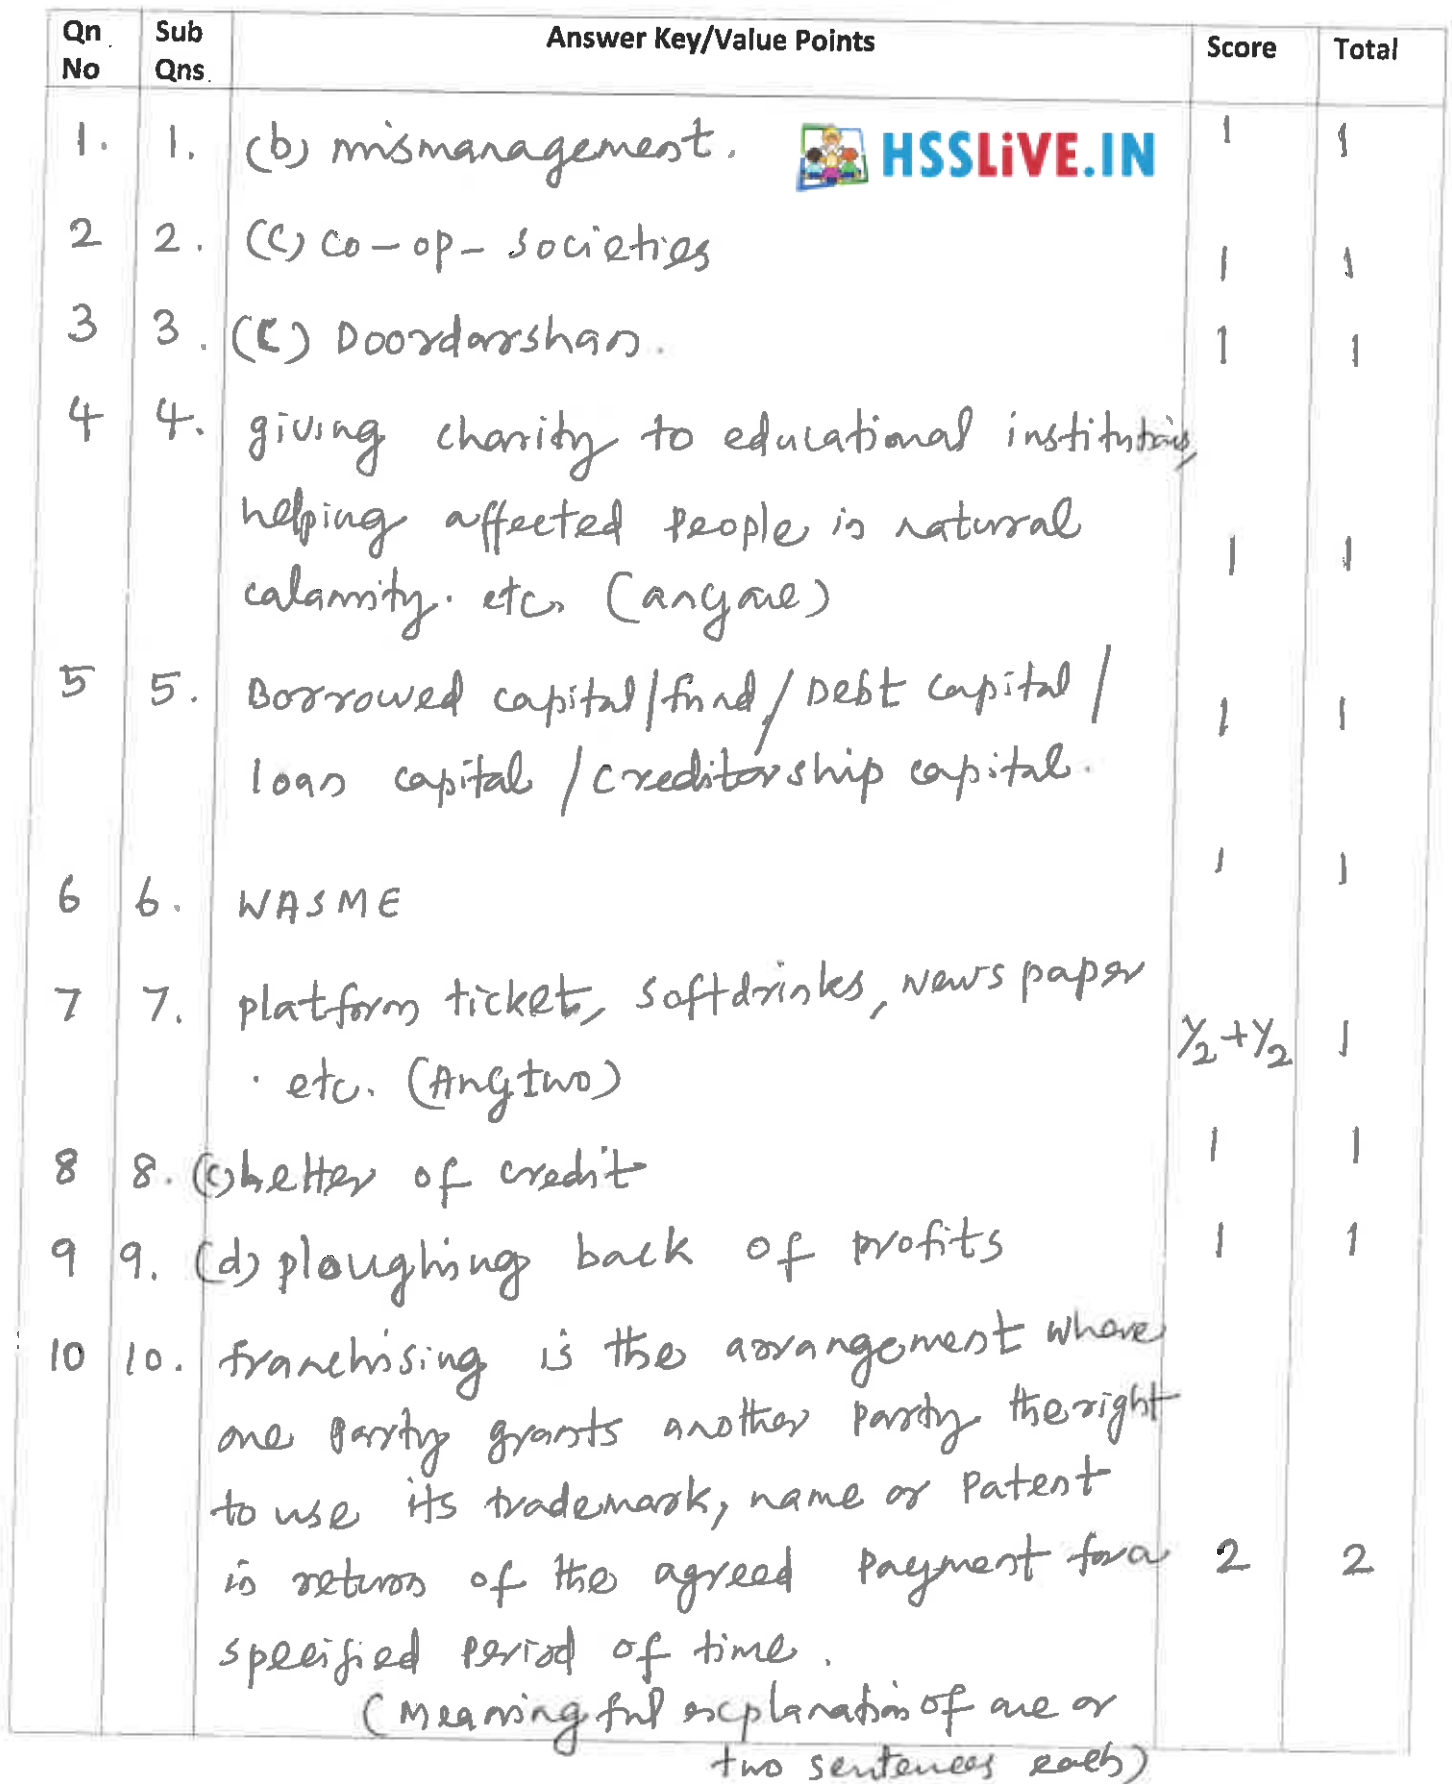 Qn No Sub Qns. Answer Key/Value Points Score Total
1. 1. (b) mismanagement. HSSLiVE.IN 1 1
2 2. (c) co-op-societies 1 1
3 3. (c) Doordarshan. 1 1
4 4. giving charity to educational institutions,
helping affected people in natural
calamity. etc. (any one) 1 1
5 5. Borrowed capital/fund/Debt capital/ 1 1
loan capital/creditorship capital.
6 6. WASME 1 1
7 7. platform ticket, softdrinks, News paper
etc. (Any two) 1/2+1/2 1
8 8. (c) letter of credit 1 1
9 9. (d) ploughing back of profits 1 1
10 10. franchising is the arrangement where
one party grants another party the right
to use its trademark, name or patent
in return of the agreed payment for a 2 2
specified period of time.
(Meaningful explanation of one or
two sentences each)